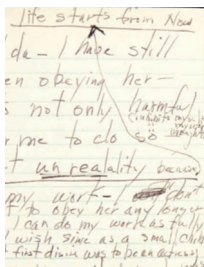 life starts from Now
da - I have still
en obeying her -
s not only harmful
(inhibits my
r me to do so
t unreality because
my work - I don't
t to obey her any longer
I can do my work as fully
I wish since as a small child
first desire was to be an actress)